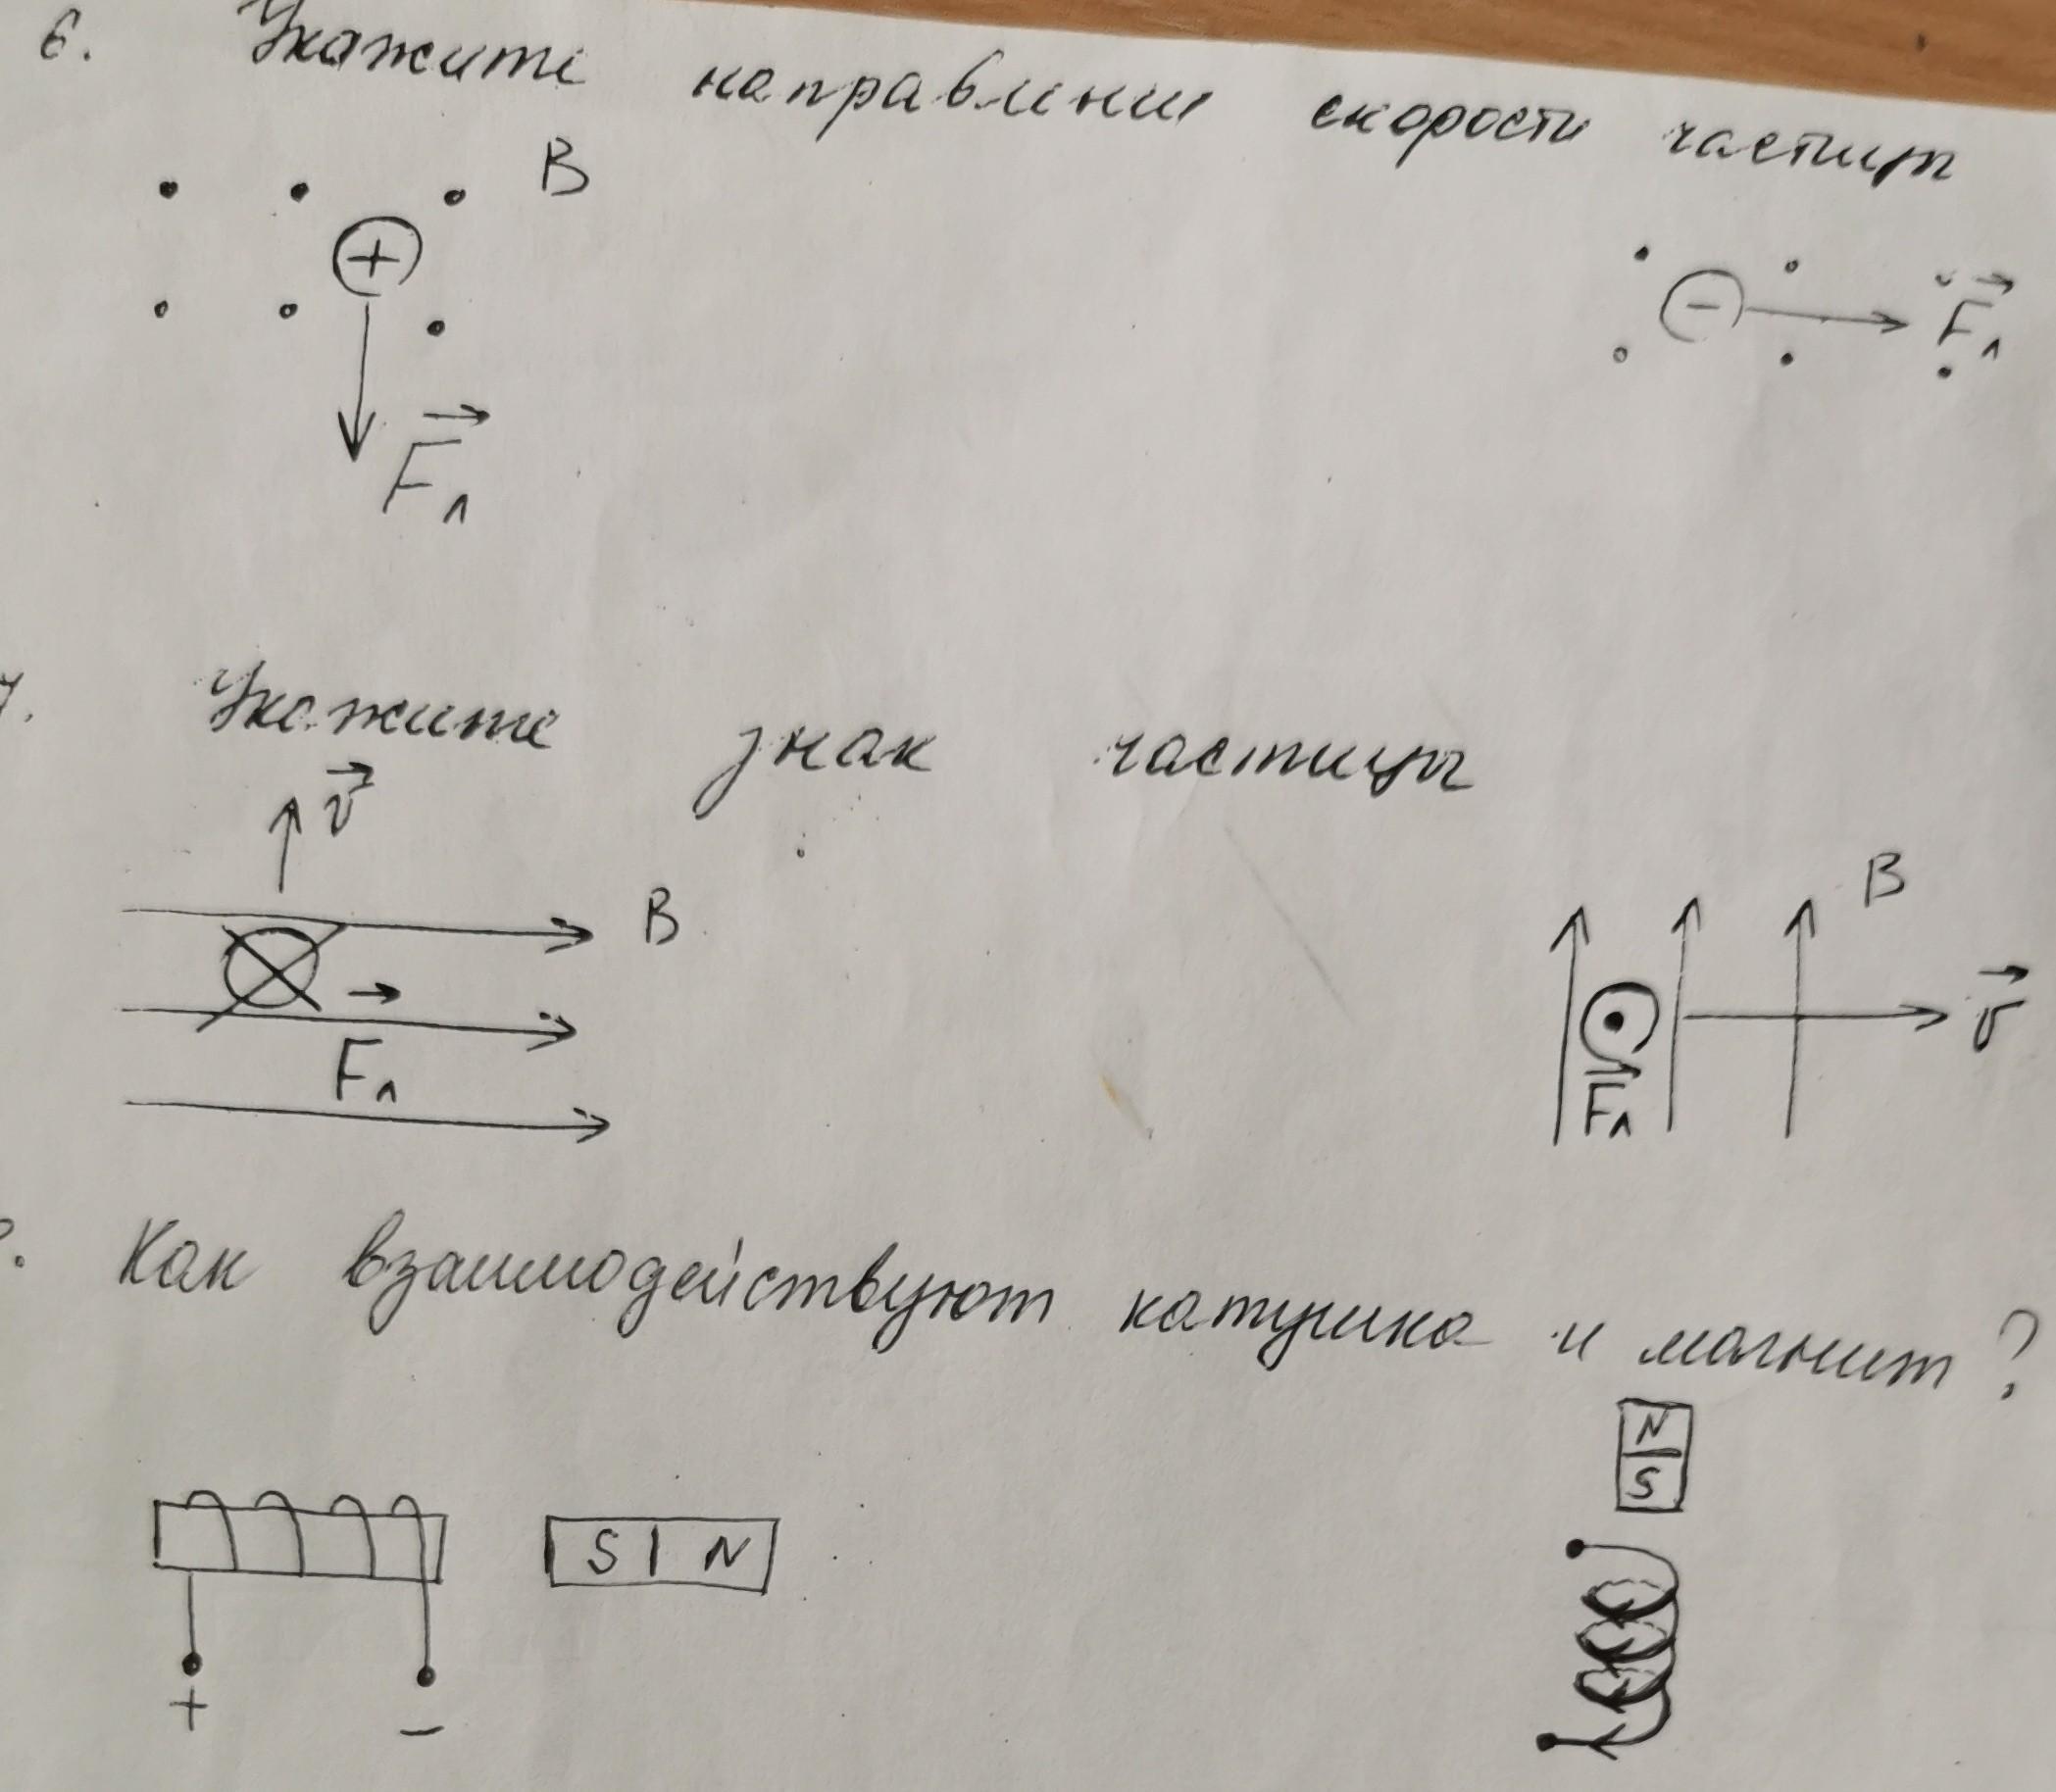 6. Укажите направление скорости частицы
B
+
-
F л
F л
7. Укажите знак частицы
v
B
B
v
F л
F л
Как взаимодействуют катушка и магнит?
N
S
S N
+ -